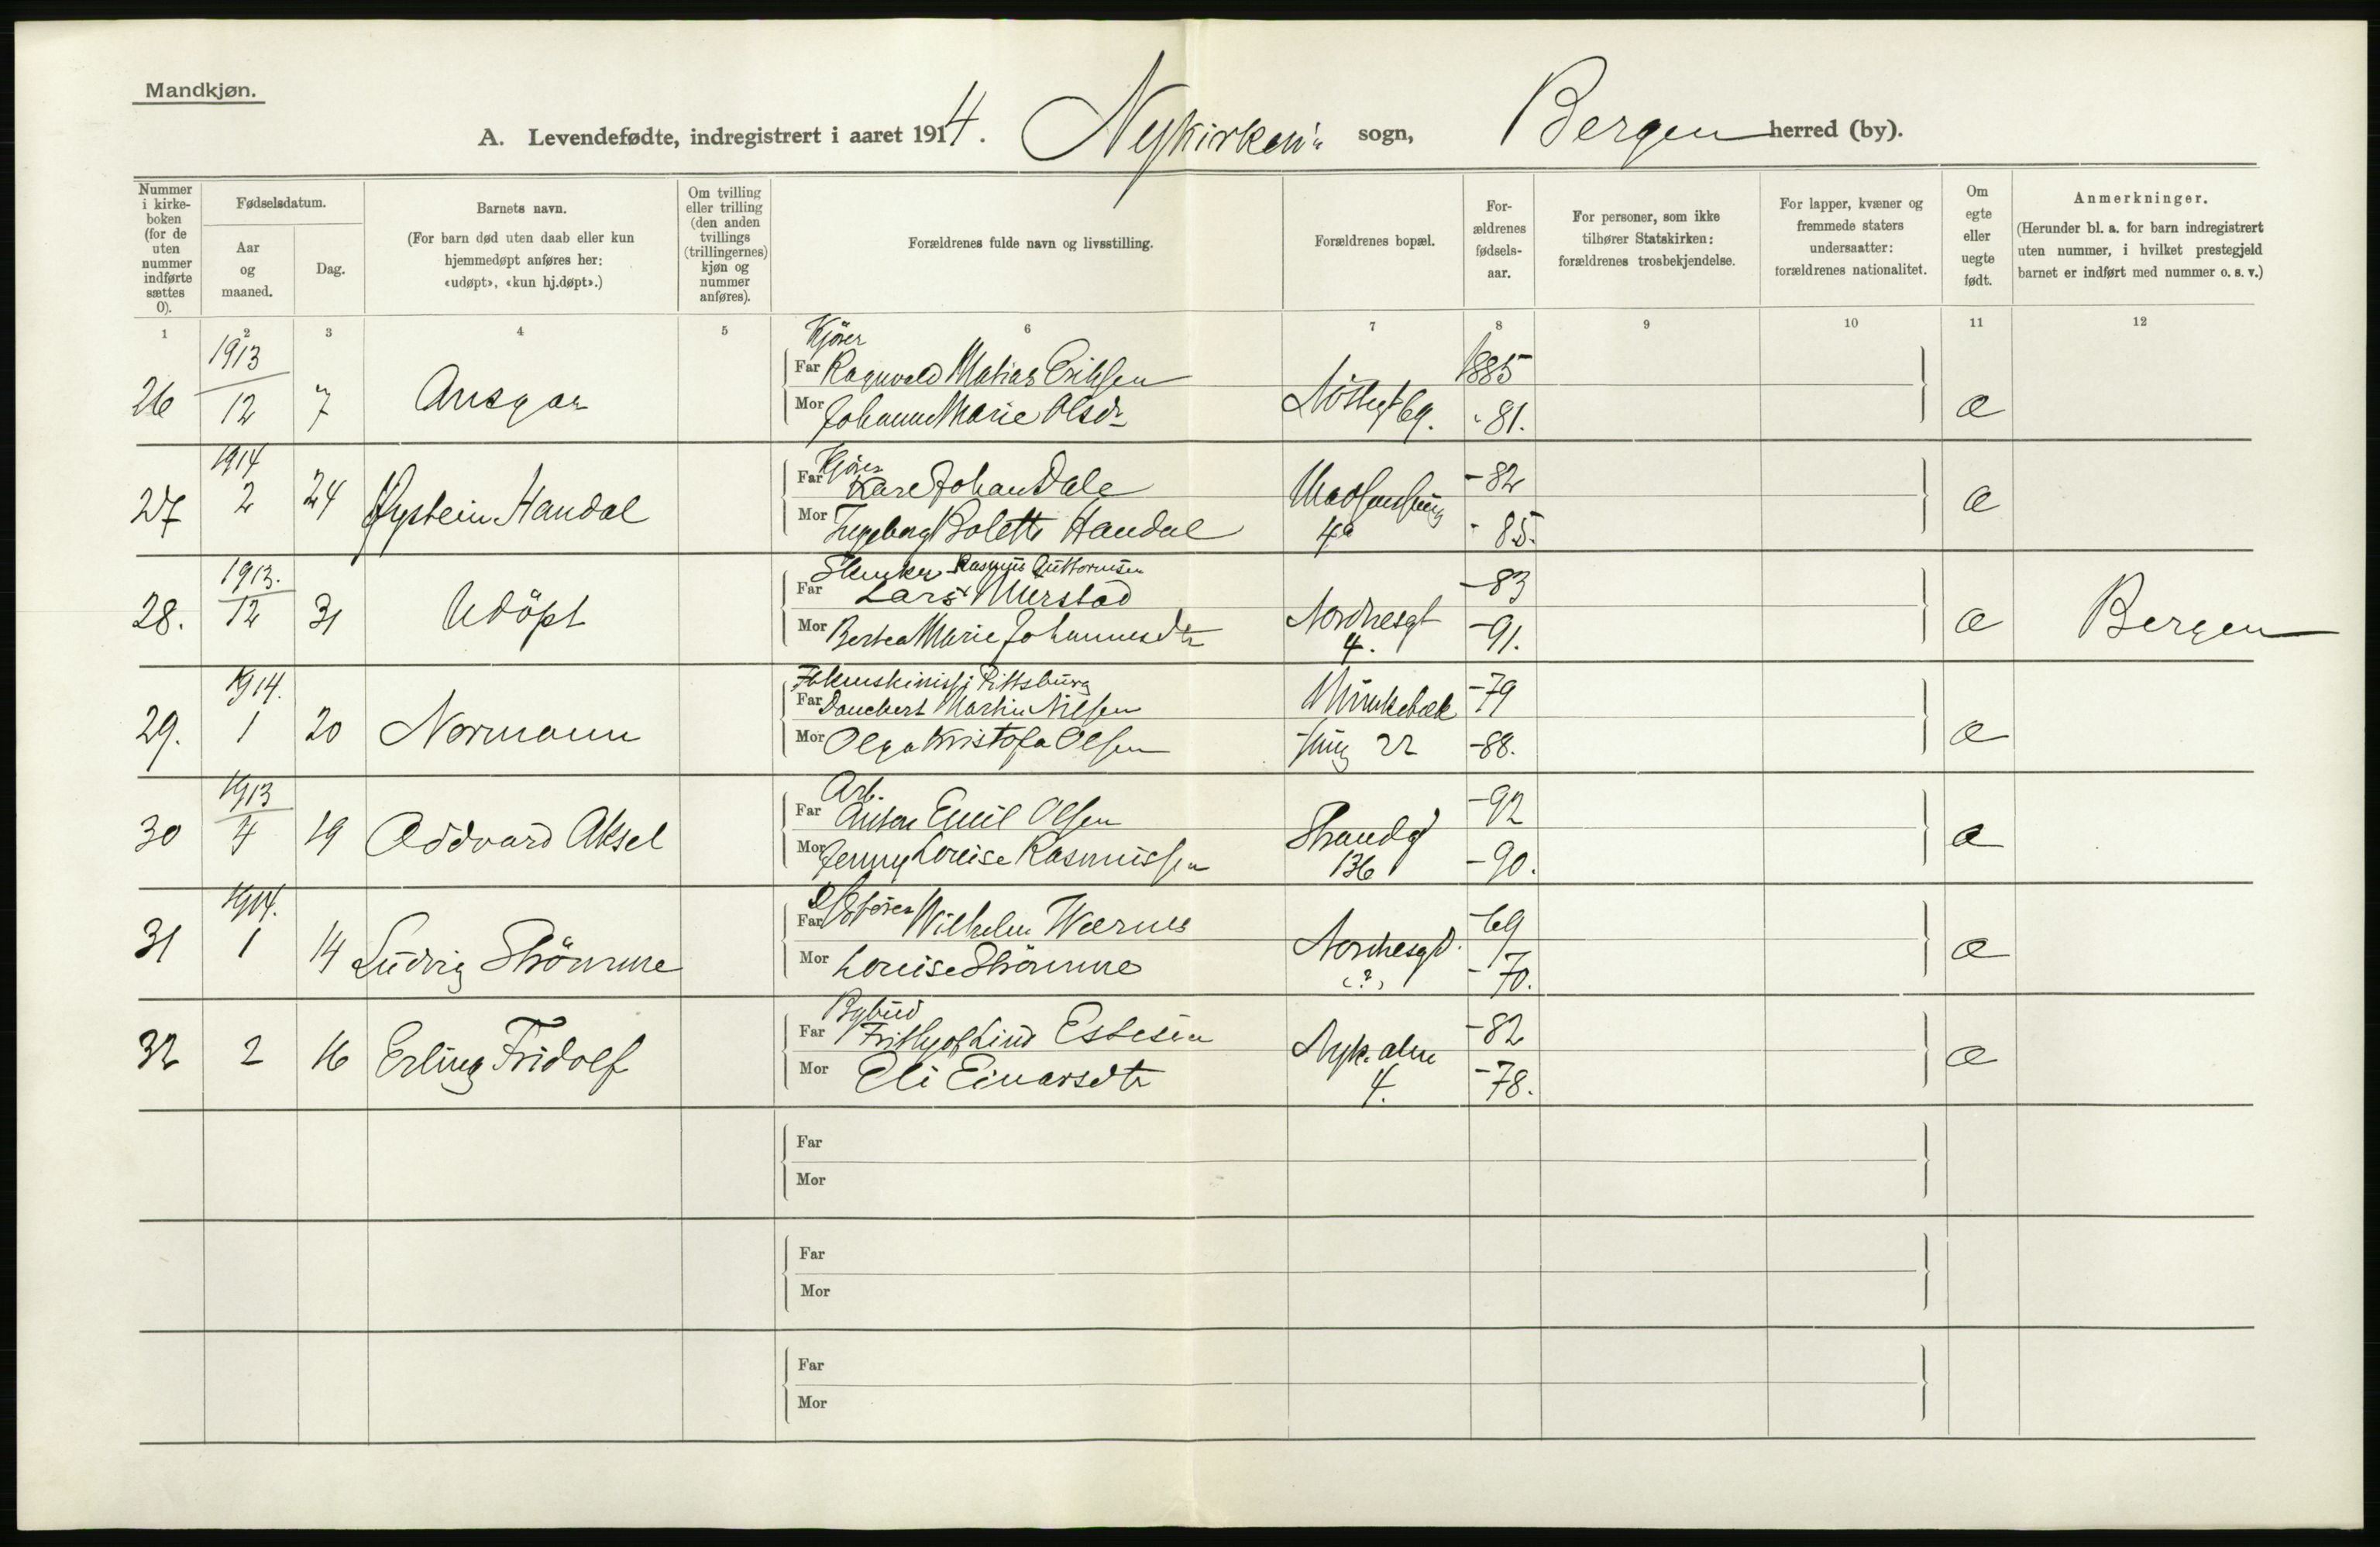 Mandkjøn.
A. Levendefødte, indregistrert i aaret 1914. Nykirken's sogn, Bergen herred (by).
Nummer i kirke-boken (for de uten nummer indførte sættes 0).
Fødselsdatum.
Aar og maaned.
Dag.
Barnets navn.
(For barn død uten daab eller kun hjemmedøpt anføres her: «udøpt», «kun hj.døpt».)
Om tvilling eller trilling (den anden tvillings (trillingernes) kjøn og nummer anføres).
Forældrenes fulde navn og livsstilling.
Forældrenes bopæl.
For-ældrenes fødsels-aar.
For personer, som ikke tilhører Statskirken: forældrenes trosbekjendelse.
For lapper, kvæner og fremmede staters undersaatter: forældrenes nationalitet.
Om egte eller uegte født.
Anmerkninger.
(Herunder bl. a. for barn indregistrert uten nummer, i hvilket prestegjeld barnet er indført med nummer o. s. v.)
1 2 3 4 5 6 7 8 9 10 11 12
1913 Kjører
Far Ragnvald Matias Eriksen 1885
26 12 7 Ansgar Nöstegt 69. æ
Mor Johanne Marie Olsdr - 81.
1914 Kjører
Far Kare Johan Dale - 82
27 2 24 Øystein Handal 4a æ
Mor Ingeborg Bolette Handal - 85.
1913. Rasmus Guttormsen
Far Lars Murstad - 83
28. 12 31 Udöpt Nordnesgt 4. æ Bergen
Mor Bertea Marie Johannesdtr - 91.
1914. Pittsburg
Far Danebert Martin Nilsen - 79
29. 1 20 Normann 22 æ
Mor Olga Kristofa Olsen - 88.
1913 Arb.
Far Anton Emil Olsen - 92
30 4 19 Oddvard Aksel Strandgt 136 æ
Mor Jenny Louise Rasmussen - 90.
1914.
Far Wilhelm Wærnes - 69
31 1 14 Ludvig Strömme Nordnesgt. (?) æ
Mor Louise Strömme - 70.
Bybud
Far Frithjof Lind Estesen - 82
32 2 16 Erling Fridolf Nyk. alm 4. æ
Mor Eli Einarsdtr - 78.
Far
Mor
Far
Mor
Far
Mor